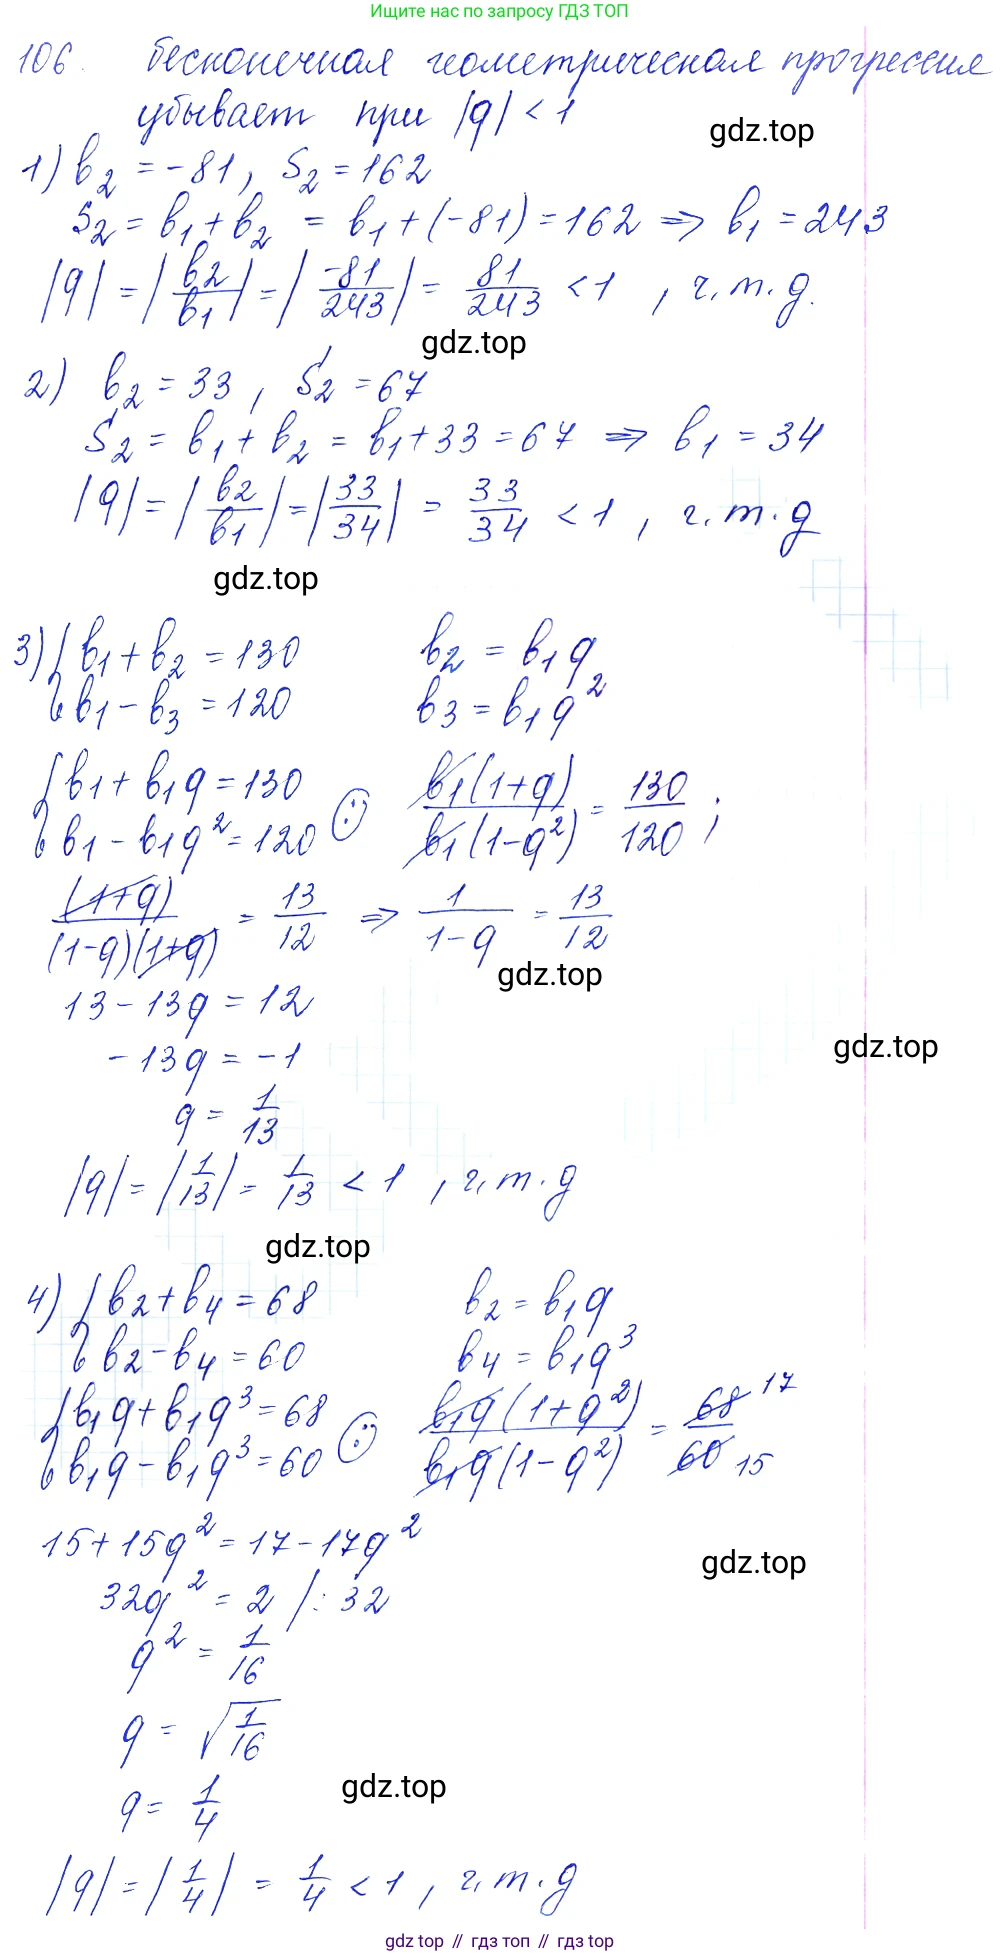 Ищите нас по запросу ГДЗ ТОП
106. бесконечная геометрическая прогрессия
убывает при |q| < 1
gdz.top
1) b₂ = -81, S₂ = 162
S₂ = b₁ + b₂ = b₁ + (-81) = 162 => b₁ = 243
|q| = |b₂/b₁| = |-81/243| = 81/243 < 1, ч.т.д.
gdz.top
2) b₂ = 33, S₂ = 67
S₂ = b₁ + b₂ = b₁ + 33 = 67 => b₁ = 34
|q| = |b₂/b₁| = |33/34| = 33/34 < 1, ч.т.д
gdz.top
3) { b₁ + b₂ = 130 b₂ = b₁q
b₁ - b₃ = 120 b₃ = b₁q²
{ b₁ + b₁q = 130
b₁ - b₁q² = 120 (:) b₁(1+q)/b₁(1-q²) = 130/120;
(1+q)/(1-q)(1+q) = 13/12 => 1/1-q = 13/12
gdz.top
13 - 13q = 12
gdz.top
-13q = -1
q = 1/13
|q| = |1/13| = 1/13 < 1, ч.т.д
gdz.top
4) { b₂ + b₄ = 68 b₂ = b₁q
b₂ - b₄ = 60 b₄ = b₁q³
{ b₁q + b₁q³ = 68
b₁q - b₁q³ = 60 (:) b₁q(1+q²)/b₁q(1-q²) = 68 17/60 15
15 + 15q² = 17 - 17q²
gdz.top
32q² = 2 |: 32
q² = 1/16
q = √1/16
gdz.top
q = 1/4
|q| = |1/4| = 1/4 < 1, ч.т.д
gdz.top // гдз.топ // gdz.top